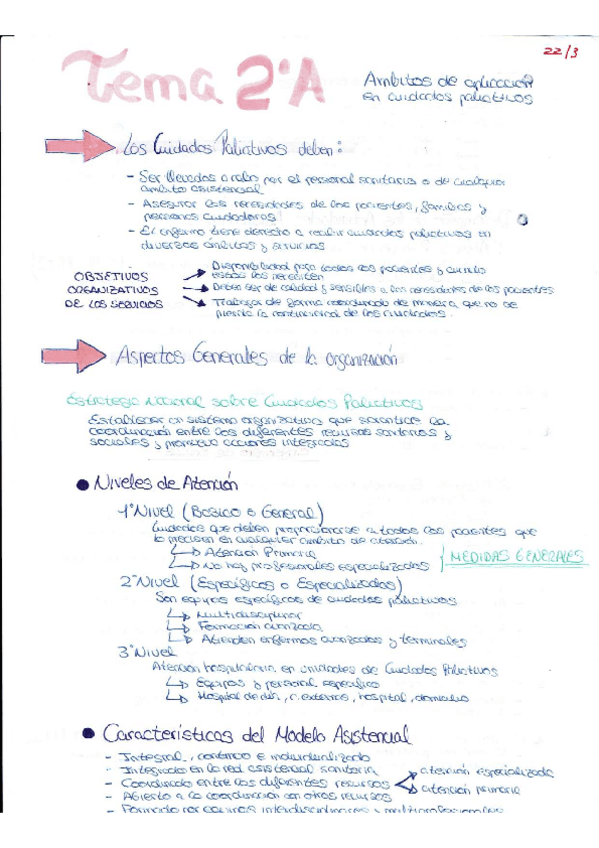 22/3
Tema 2ºA
Ambitos de aplicación
en cuidados paliativos
Los Cuidados Paliativos deben:
- Ser llevados a cabo por el personal sanitario o de cualquier
ámbito asistencial
- Asegurar las necesidades de los pacientes, familias y
personas cuidadoras
- El enfermo tiene derecho a recibir cuidados paliativos en
diversos ámbitos y servicios
OBJETIVOS
ORGANIZATIVOS
DE LOS SERVICIOS
Disponibilidad para todos los pacientes y cuando
estos los necesiten
Deben ser de calidad y sensibles a las necesidades de los pacientes
Trabajar de forma coordinada de manera que no se
pierda la continuidad de los cuidados.
Aspectos Generales de la organización
Estrategia Nacional sobre Cuidados Paliativos
Establecer un sistema organizativo que garantice la
coordinación entre los diferentes recursos sanitarios y
sociales y promueva acciones integradas
Niveles de Atención
1º Nivel (Básico o General)
Cuidados que deben proporcionarse a todos los pacientes que
lo precisen en cualquier ámbito de atención.
Atención Primaria
No hay profesionales especializados
MEDIDAS GENERALES
2º Nivel (Específicos o Especializados)
Son equipos específicos de cuidados paliativos
Multidisciplinar
Formación avanzada
Atienden enfermos avanzados y terminales
3º Nivel
Atención hospitalaria en unidades de Cuidados Paliativos
Equipos y personal específico
Hospital de día, c. externas, hospital, domicilio
Características del Modelo Asistencial
- Integral, continuo e individualizado
- Integrado en la red asistencial sanitaria
- Coordinado entre los diferentes recursos
atención especializada
atención primaria
- Abierto a la coordinación con otros recursos
- Formado por equipos interdisciplinares y multiprofesionales